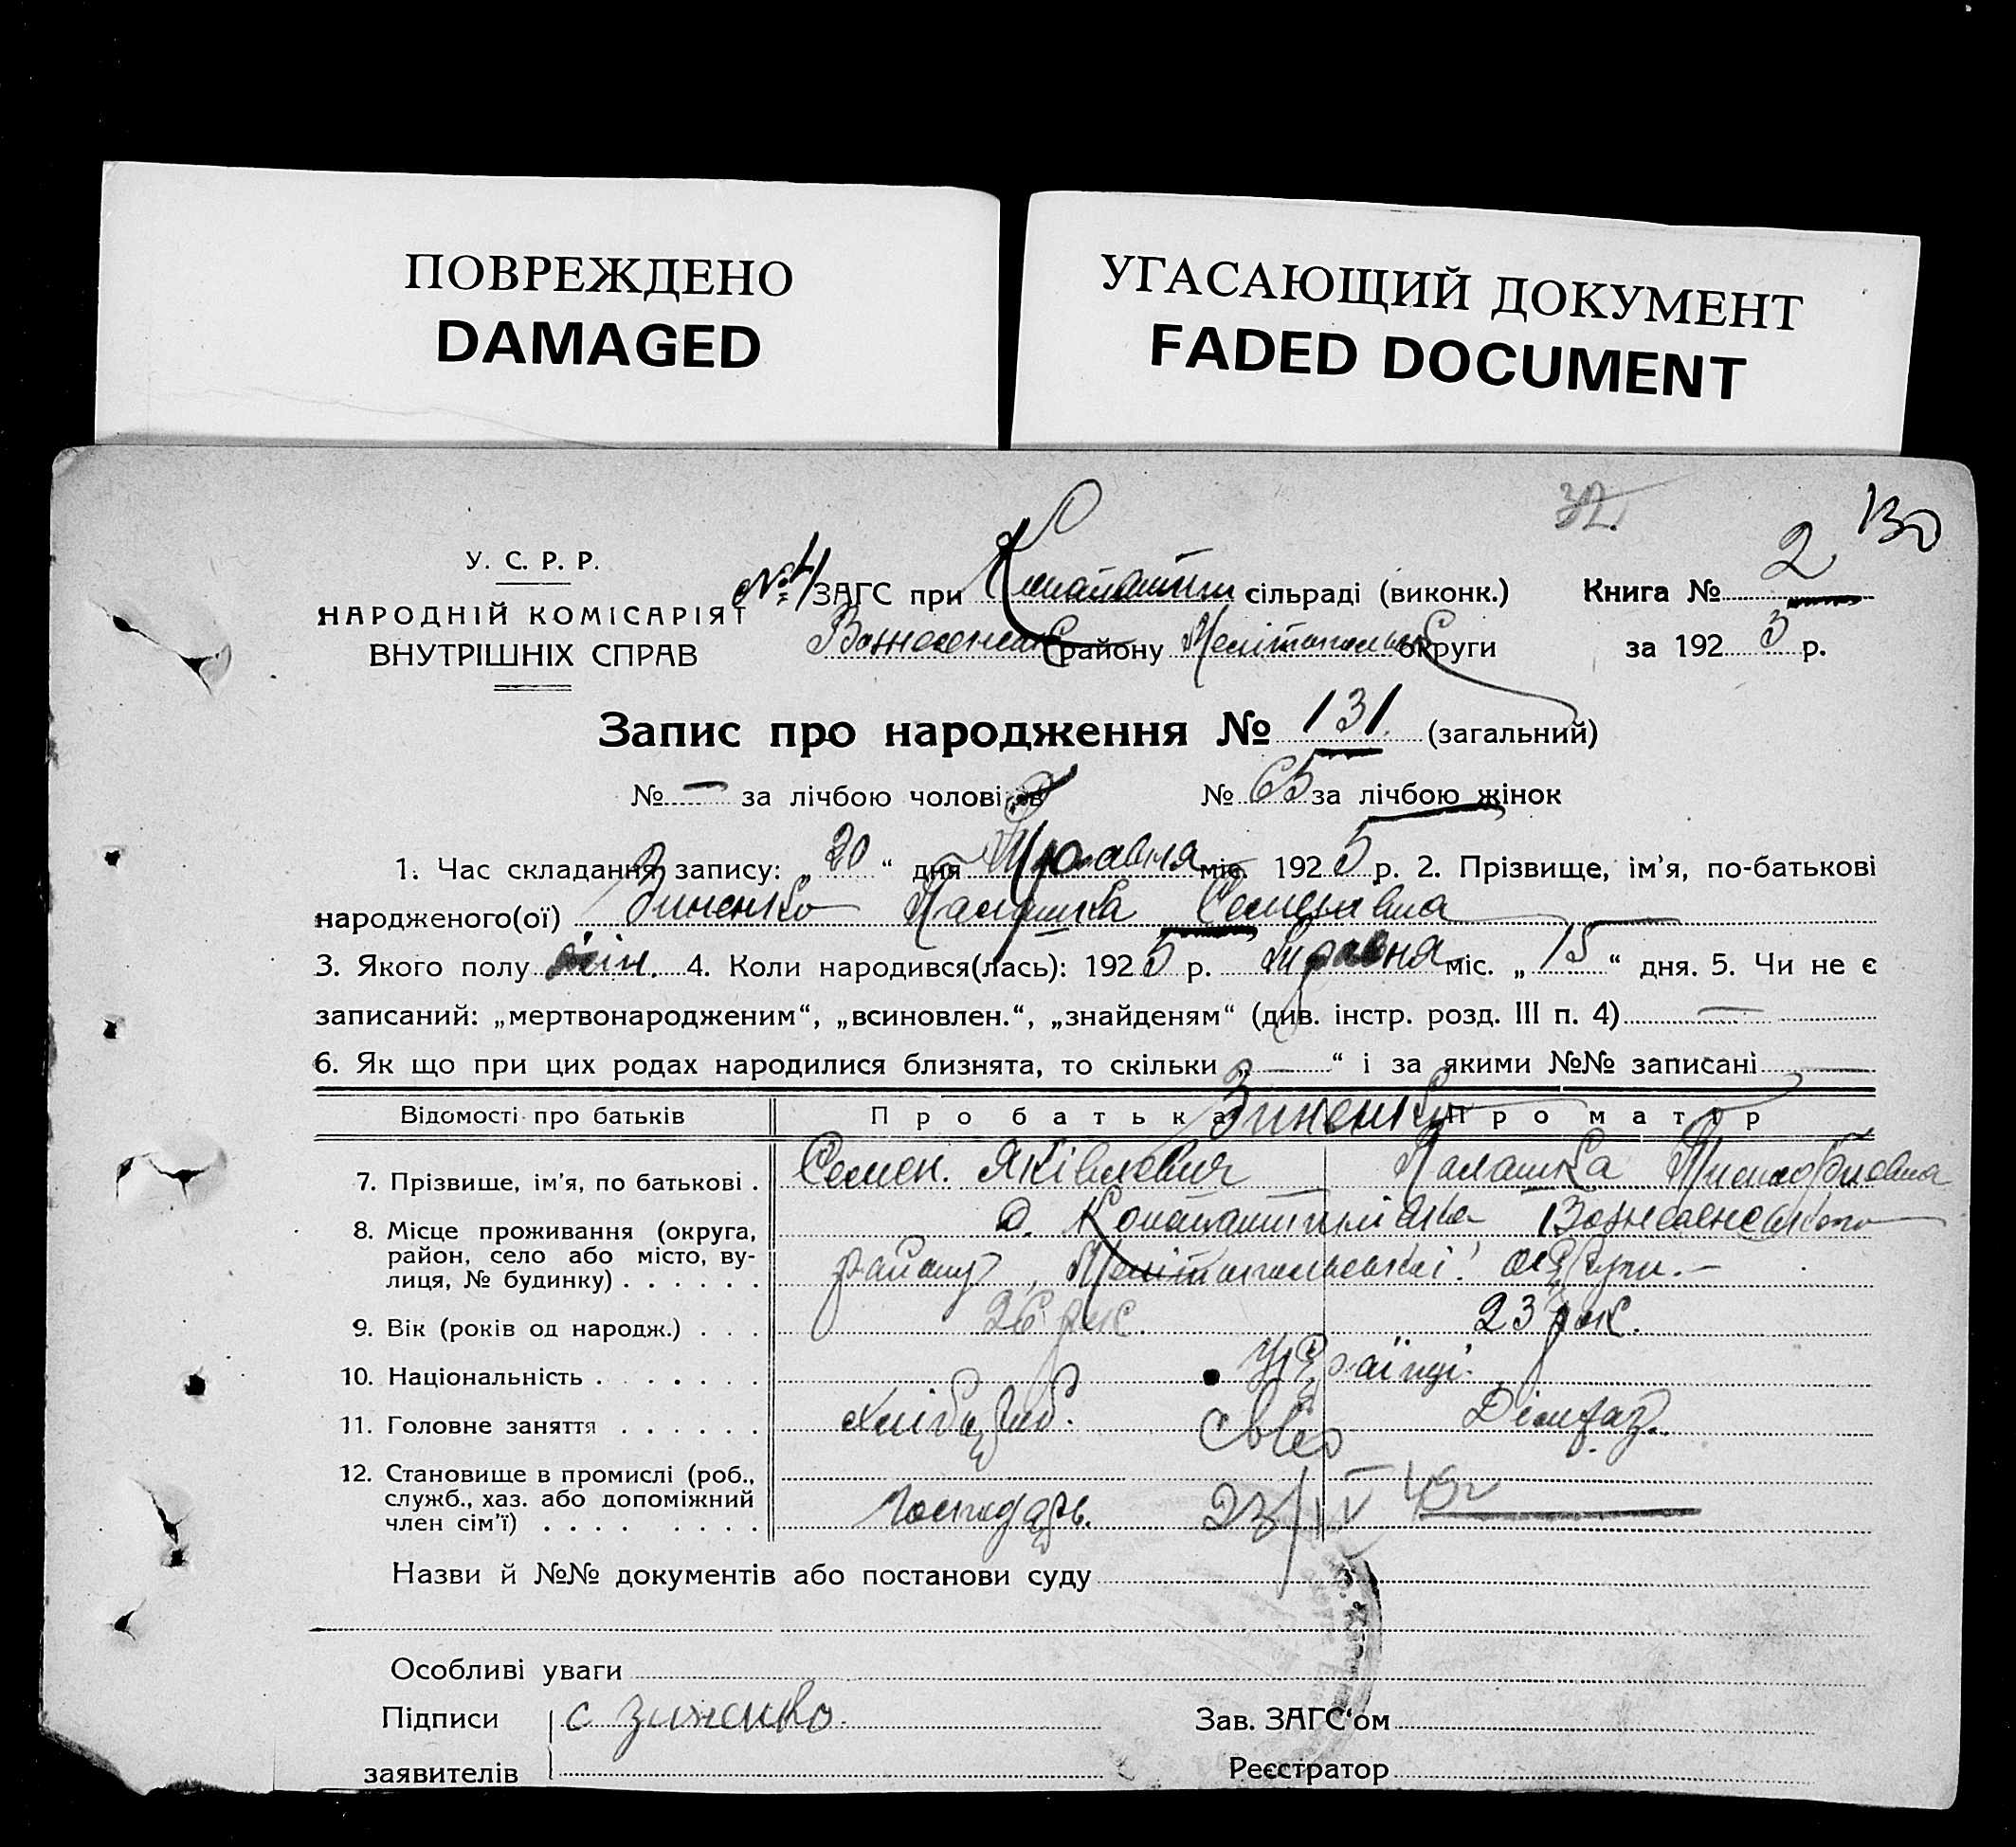 ПОВРЕЖДЕНО
DAMAGED
УГАСАЮЩИЙ ДОКУМЕНТ
FADED DOCUMENT
32
130
У. С. Р. Р.
НАРОДНІЙ КОМІСАРІЯТ
ВНУТРІШНІХ СПРАВ
№ 4 ЗАГС при сільраді (виконк.)
району округи
Книга № 2
за 1925 р.
Запис про народження № 131. (загальний)
№ — за лічбою чоловіків № 65 за лічбою жінок
1. Час складання запису: „20“ дня Травня міс. 1925 р. 2. Прізвище, ім'я, по-батькові
народженого(ої) Зиненко Палашка Семенівна
3. Якого полу жін. 4. Коли народився(лась): 1925 р. Травня міс. „15“ дня. 5. Чи не є
записаний: „мертвонародженим“, „всиновлен.“, „знайденям“ (див. інстр. розд. III п. 4) —
6. Як що при цих родах народилися близнята, то скільки „—“ і за якими №№ записані —
Відомості про батьків Про батька Про матір
Зиненко
7. Прізвище, ім'я, по батькові . Семен. Яківлович Палашка
8. Місце проживання (округа, район, село або місто, вулиця, № будинку) . . . . . . с. Вознесенського
району, Мелітопольської округи. —
9. Вік (років од народж.) . . . 26 рок. 23 рок.
10. Національність . . . . . . . Українці.
11. Головне заняття . . . . . . хлібороб. Домгаз.
12. Становище в промислі (роб., служб., хаз. або допоміжний член сім'ї) . . . . . . . . Господарь.
23/V 45г
Назви й №№ документів або постанови суду
Особливі уваги
Підписи заявителів С Зиненко.
Зав. ЗАГС'ом
Реєстратор